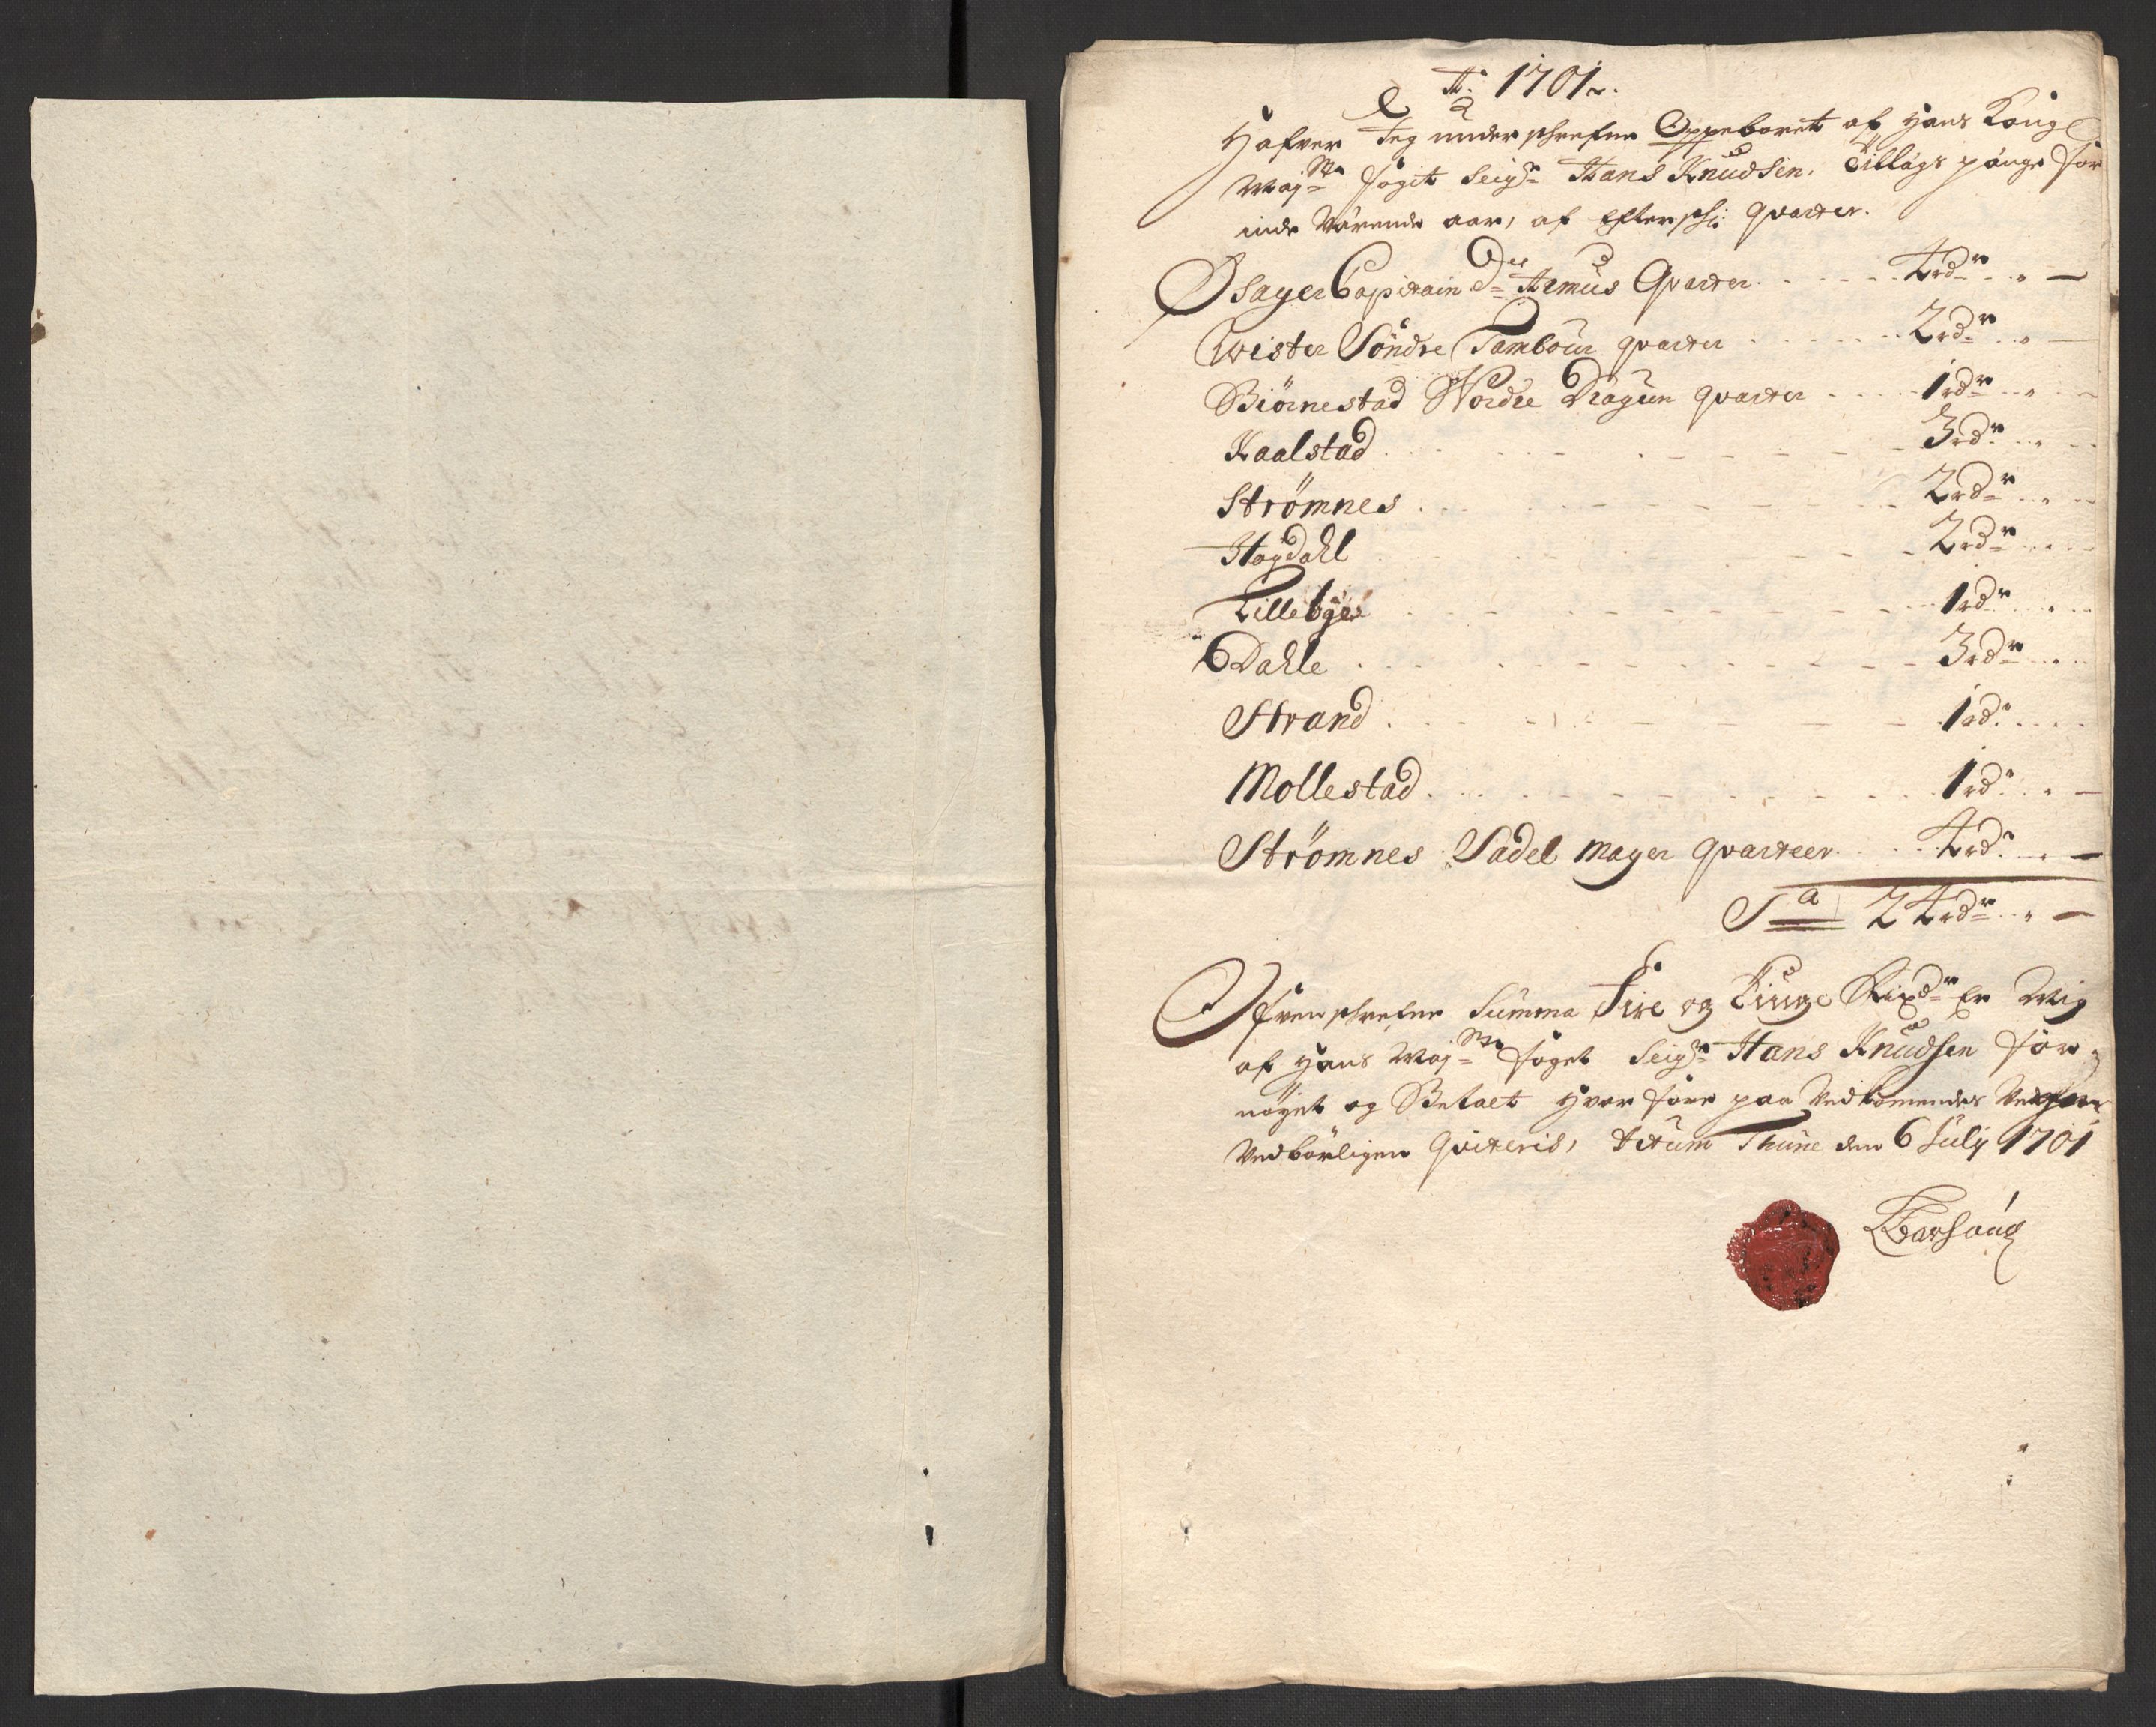 Ao 1701.
Hafver Jeg underschrefne Oppeboret af Hans Kongl
Maj.ts fogit Seig.r Hans Knudsen. Tillags pänge for
inde Värende aar, af effterschr: quarter.
Capitain D'Armus Quarter. 4 rd.r
Wister Söndre Tambour quarter 2 rd.r
Biörnestad Nordre Dragun quarter 1 rd.r
Kaalstad 3 rd.r
Strömnes 2 rd.r
Hogdahl 2 rd.r
Lillebye 1 rd.r
Dahle 3 rd.r
Strand 1 rd.r
Mollestad 1 rd.r
Strömnes Sadel mager quarteer 4 rd.r
S.a 24 rd.r
Ofvenschrefne Summa Fire og Tiuge Rixd.r Er Mig
af Hans Maj.ts foget Seig.r Hans Knudsen for
nöyet og Betalt hvor fore paa Vedkomendes Vegne
Vedbörligen Quiteris, Actum Thune den 6 July 1701